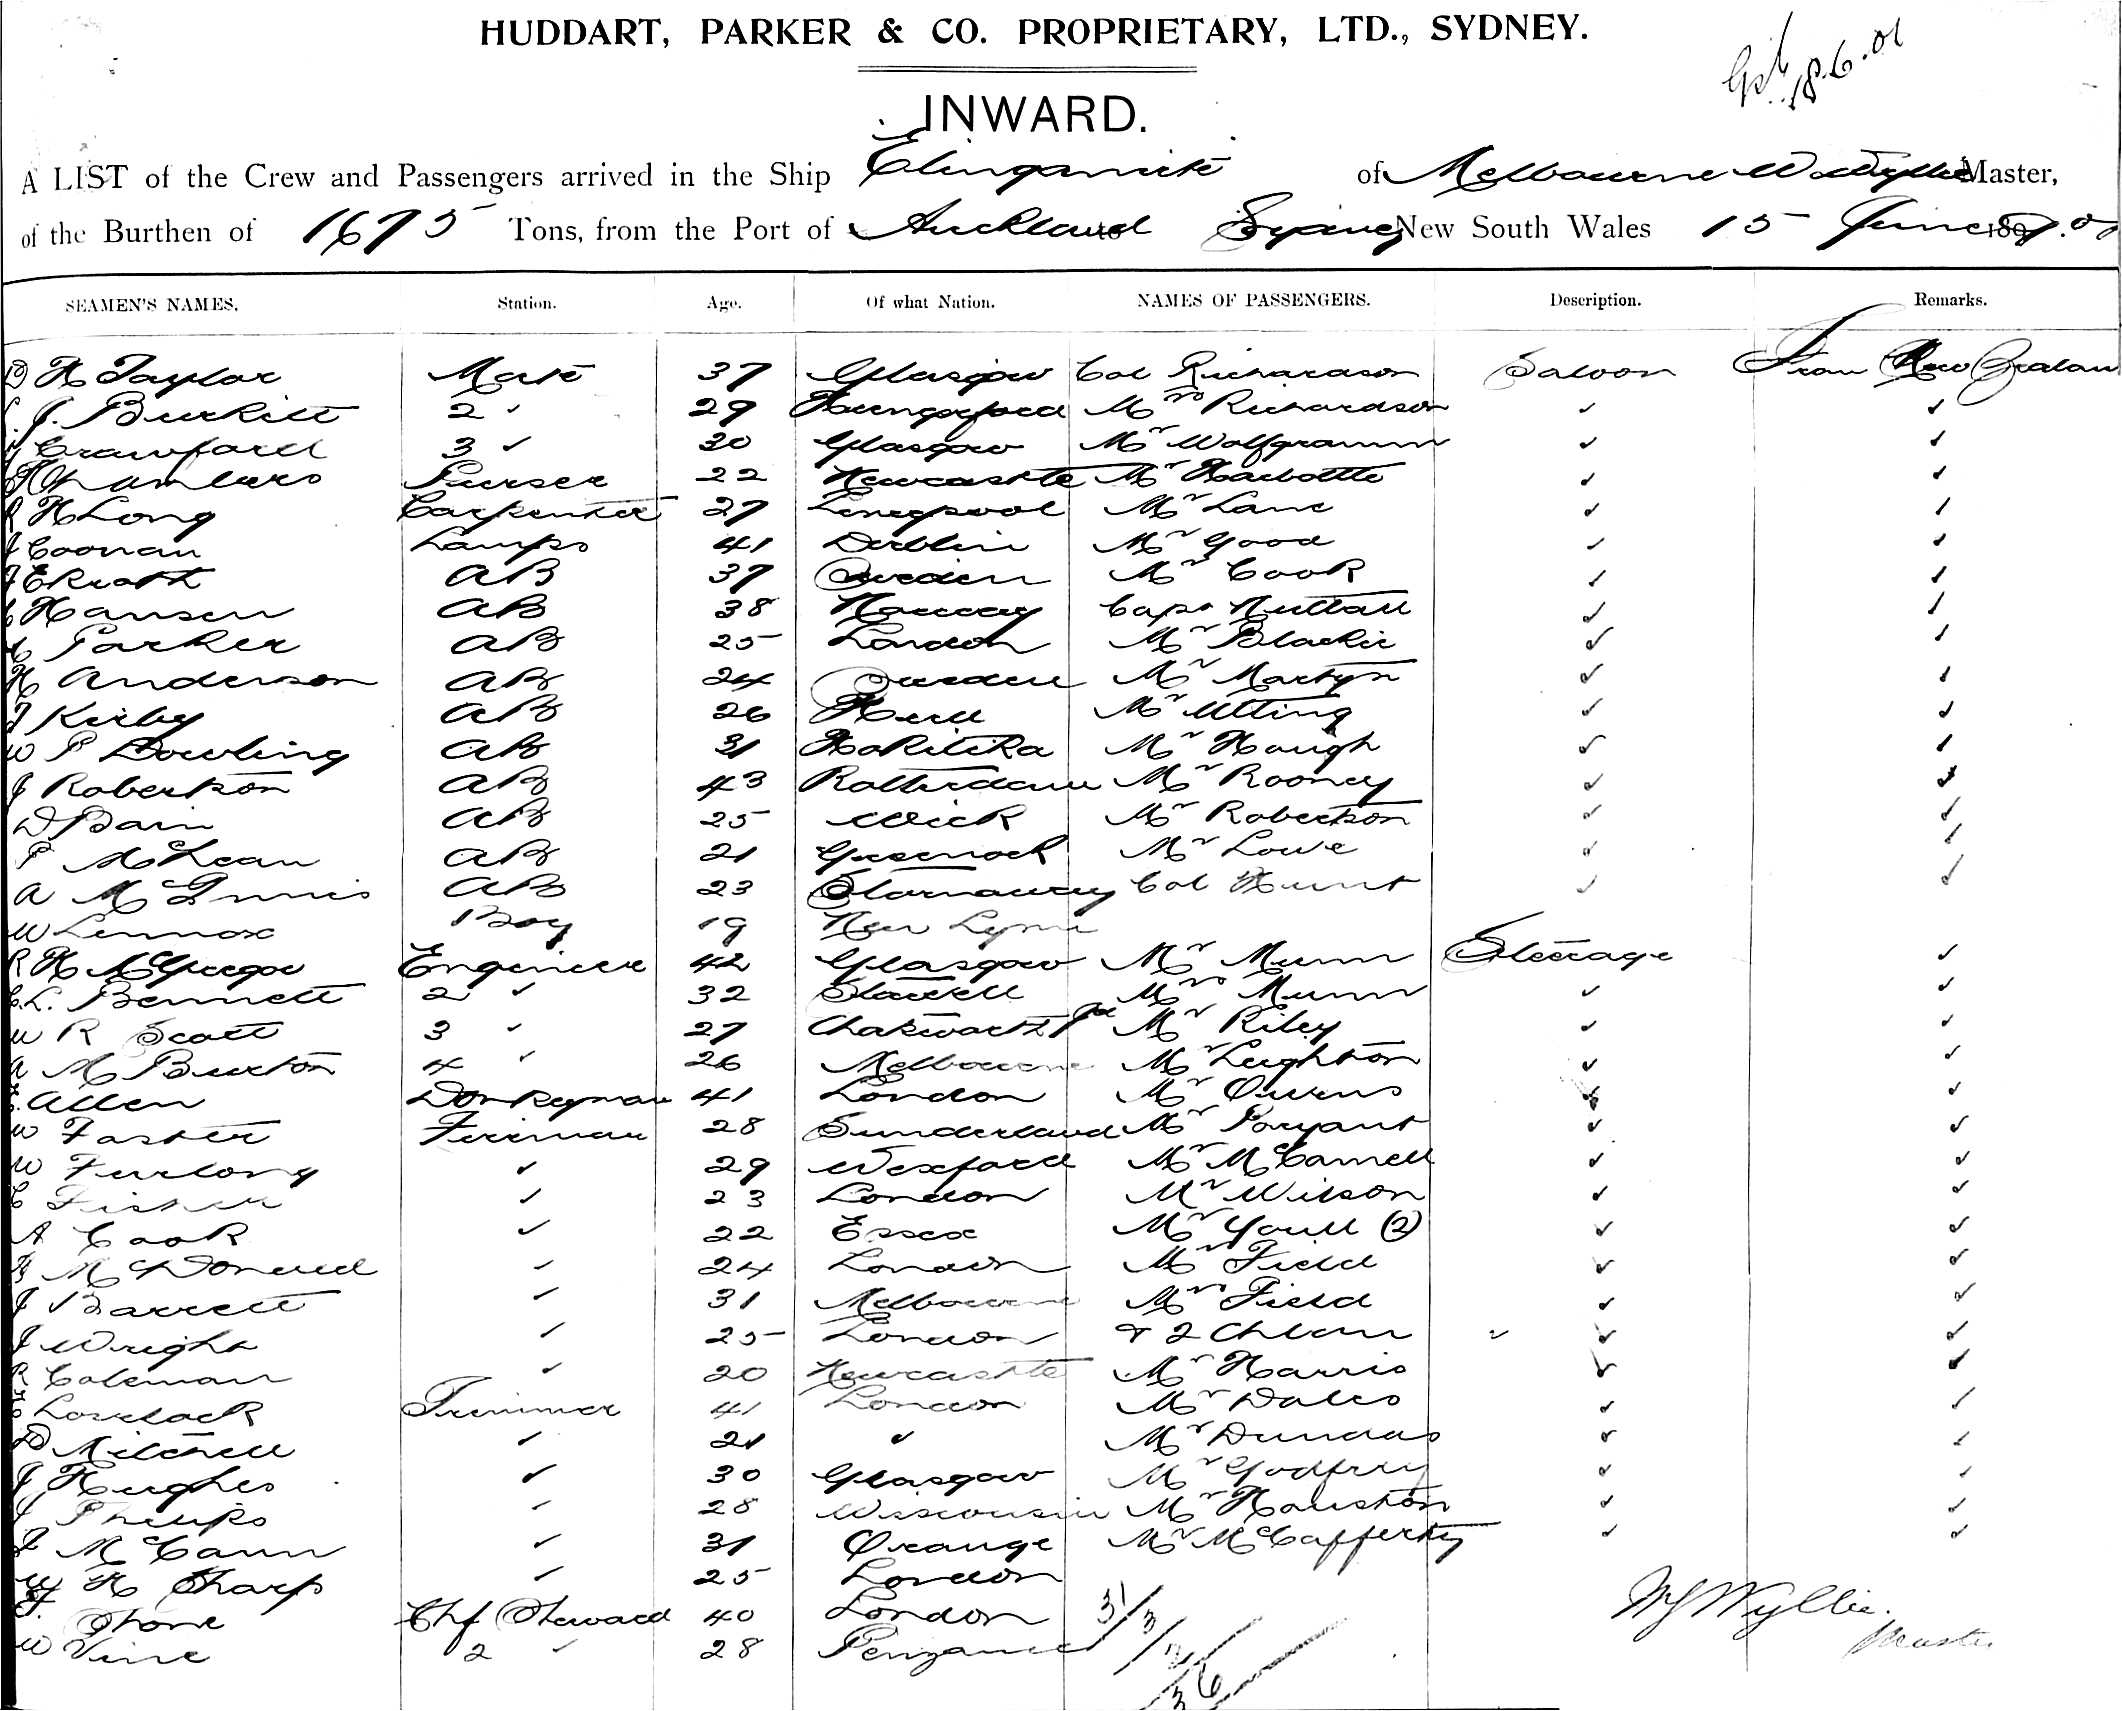 HUDDART, PARKER & CO. PROPRIETARY, LTD., SYDNEY.
18.6.01
INWARD.
A LIST of the Crew and Passengers arrived in the Ship Elingamite of Melbourne W Wyllie Master,
of the Burthen of 1675 Tons, from the Port of Auckland to Sydney New South Wales 15 June 1890.01
SEAMEN'S NAMES. Station. Age. Of what Nation. NAMES OF PASSENGERS. Description. Remarks.
D H Taylor Mate 37 Glasgow Col Richardson Saloon From New Zealand
J. Burkitt 2 " 29 Hungerford Mrs Richardson " "
Crawford 3 " 30 Glasgow Mr Wolfgramm " "
Chambers Purser 22 Newcastle Mr Harbottle " "
R H Long Carpenter 27 Liverpool Mr Lane " "
J Coonan Lamps 41 Dublin Mr Good " "
AB 37 Sweden Mr Cook " "
Hansen AB 38 Norway Capt Nuttall " "
Parker AB 25 London Mr Blackie " "
H Anderson AB 24 Sweden Mr Martyn " "
J Kirby AB 26 Hull Mr Utting " "
W P Dowling AB 31 Hokitika Mr Hough " "
J Robertson AB 43 Rotterdam Mr Rooney " "
D Bain AB 25 Wick Mr Robertson " "
P McLean AB 21 Greenock Mr Lowe " "
A McInnis AB 23 Stornaway Col Hunt " "
W Lennox Boy 19 New Lynn
R H McGregor Engineer 42 Glasgow Mr Munn Steerage "
C.L. Bennett 2 " 32 Stawell Mrs Munn " "
W R Scott 3 " 27 Chatsworth Mr Riley " "
A M Burton 4 " 26 Melbourne Mr Leighton " "
Allen Donkeyman 41 London Mr Owens " "
W Foster Fireman 28 Sunderland Mr Poryant " "
W Furlong " 29 Wexford Mr McCarnell " "
C Fisher " 23 London Mr Wilson " "
A Cook " 22 Essex Mr Youll (2) " "
McDonald " 24 London Mr Field " "
J Barrett " 31 Melbourne Mrs Field " "
J Wright " 25 London & 2 Chldrn " " "
R Coleman " 20 Newcastle Mr Harris " "
Loselack Trimmer 41 London Mr Dales " "
D Mitchell " 21 " Mr Dundas " "
J Hughes " 30 Glasgow Mr Godfrey " "
J Phillips " 28 Wisconsin Mr Houston " "
J McCann " 31 Orange Mr McCafferty " "
W H Sharp " 25 London
Stone Chf Steward 40 London 31/3/2
W Vine 2 " 28 Penzance 36
W Wyllie.
Master